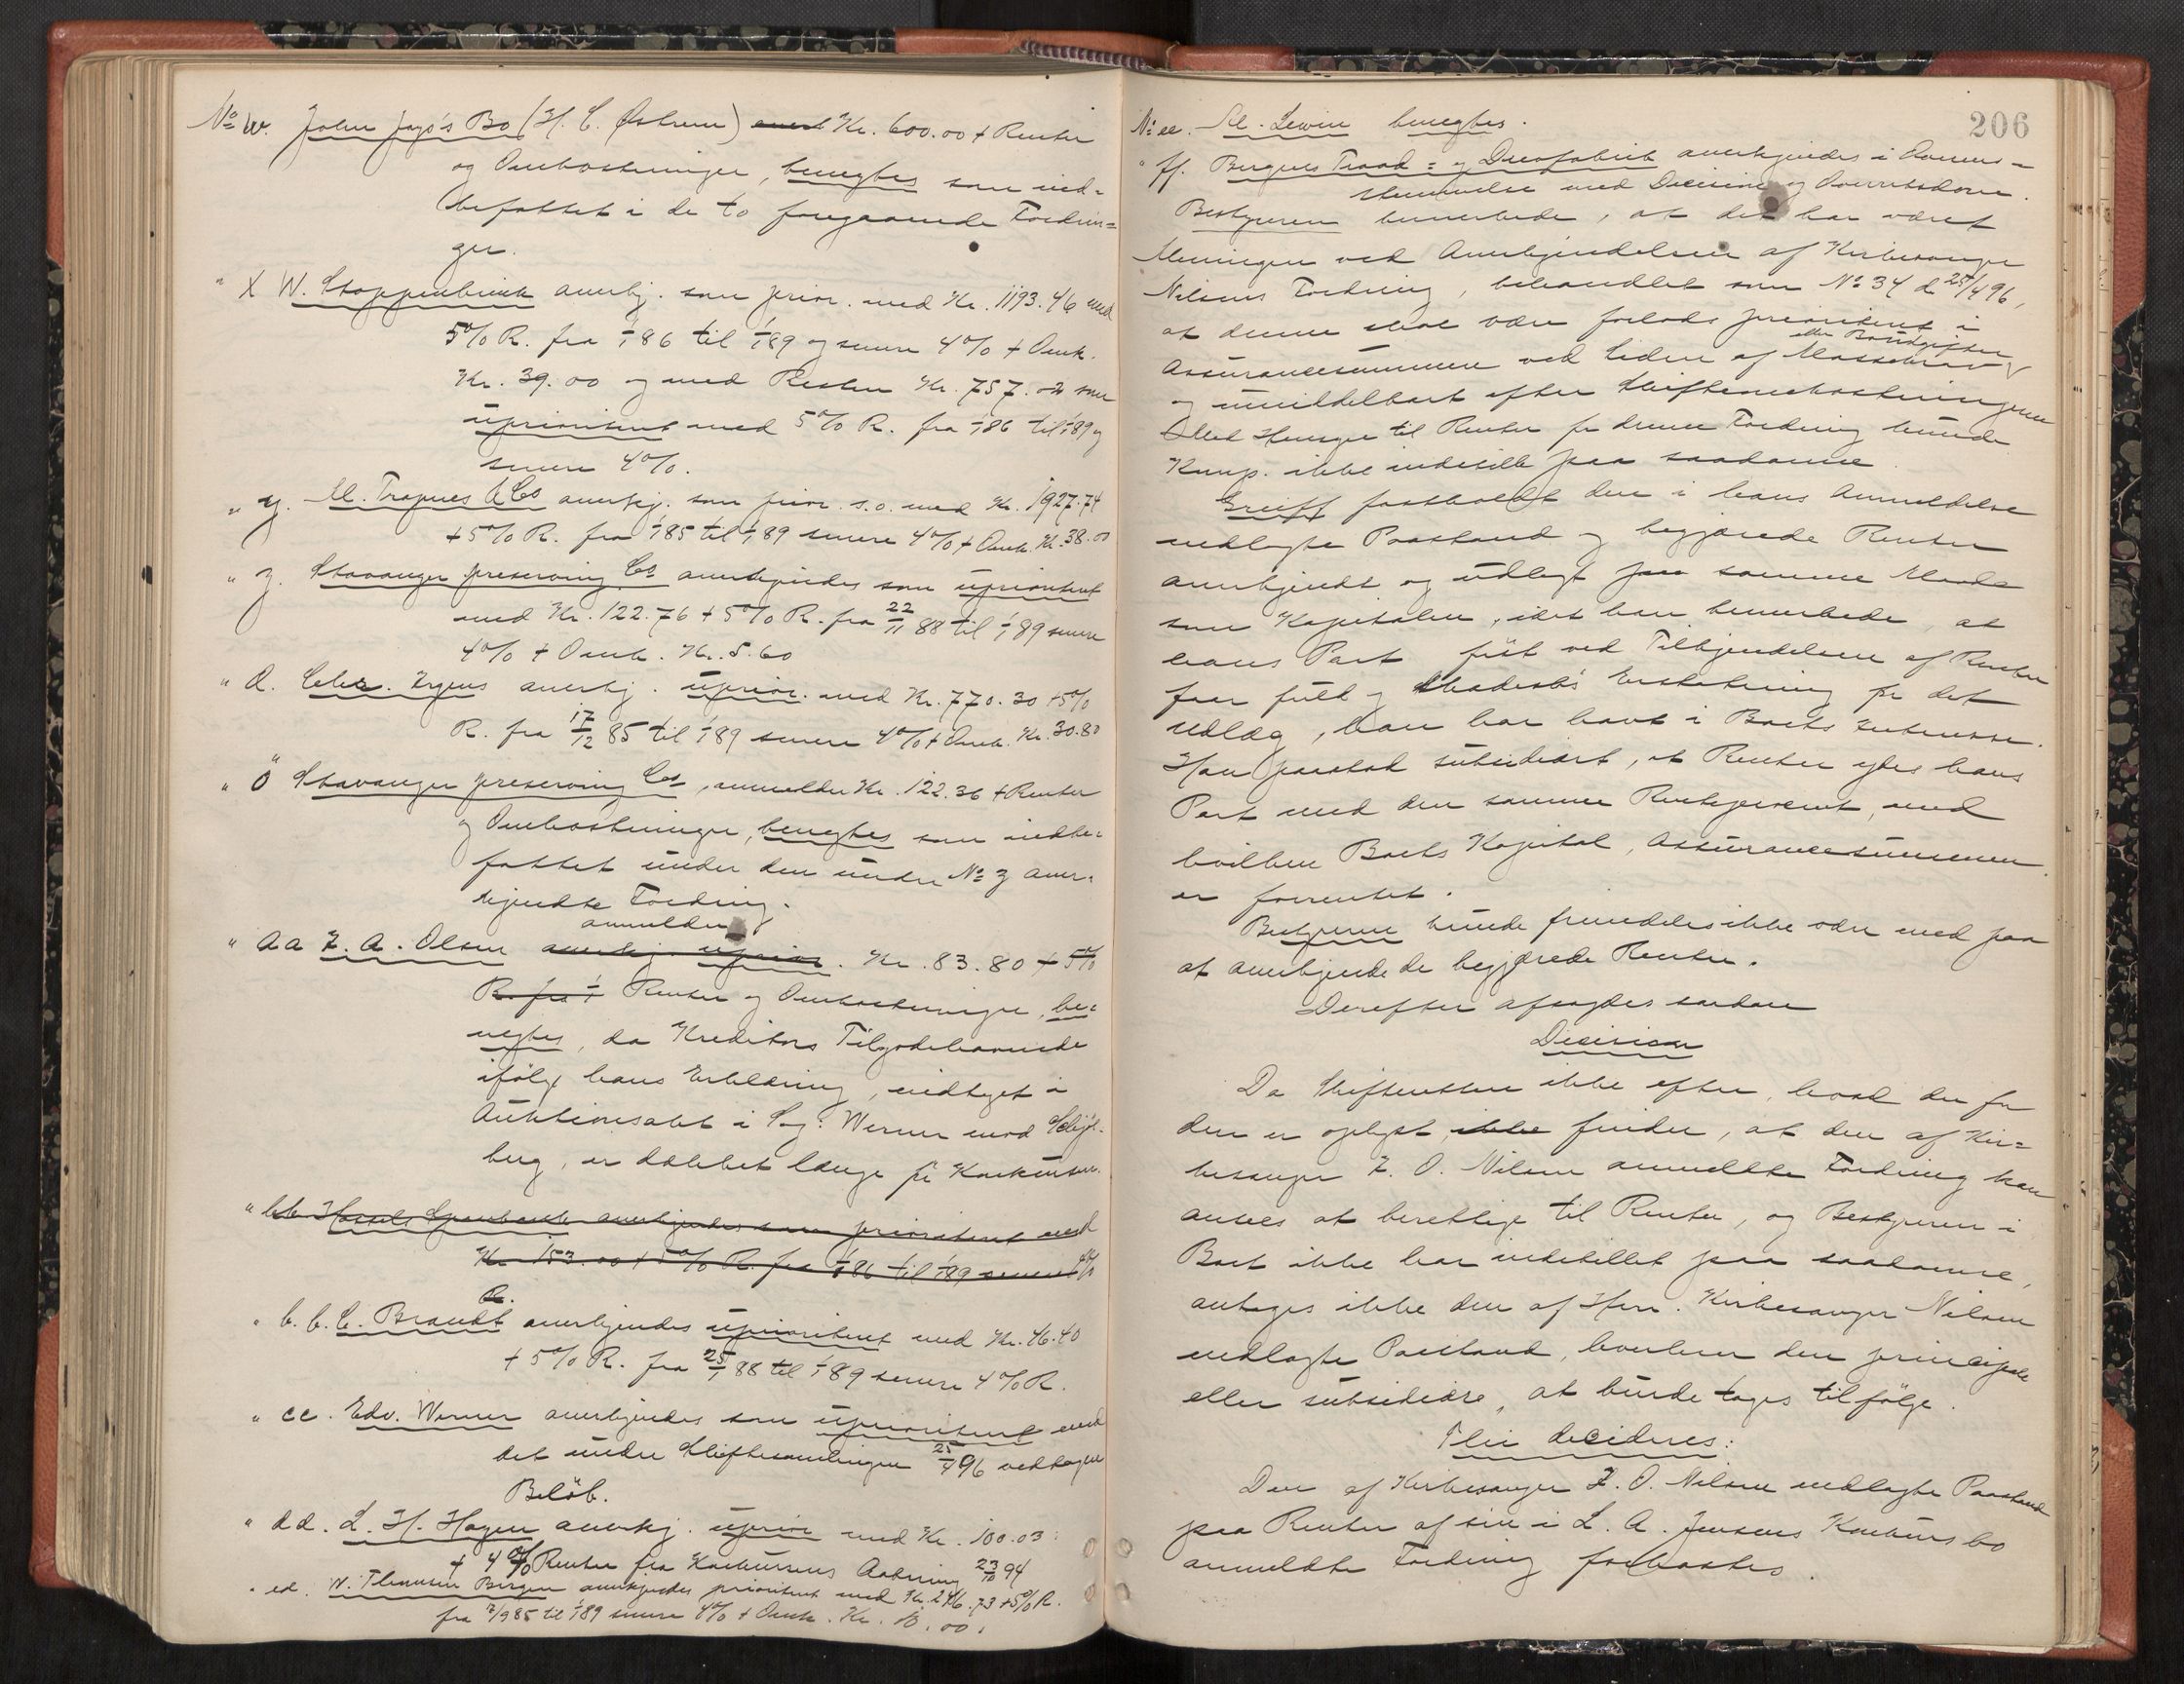 No w. John Jays's Bo (H. C. Østrem) Kr. 600.00 + Renter
og Omkostninger, benegtes som ind-
befattet i de to foregaaende Fordrin=
ger.
" X W. Stoppenbrink anerkj. som prior. med Kr. 1193.46 med
5% R. fra 1/1 86 til 1/1 89 og senere 4% + Omk.
Kr. 39.00 og med Resten Kr. 757.02 som
uprioriteret med 5% R. fra 1/1 86 til 1/1 89 og
senere 4%.
" y. M. Tranes & Co anerkj. som prior. s.o. med Kr. 1927.74
+ 5% R. fra 1/1 85 til 1/1 89 senere 4% + Omk. Kr. 38.00
" z. Stavanger preserving Co anerkjendes som uprioriteret
med Kr. 122.76 + 5% R. fra 22/11 88 til 1/1 89 senere
4% + Omk. Kr. 5.60
" Irgens anerkj. uprior. med Kr. 770.30 + 5%
R. fra 17/12 85 til 1/1 89 senere 4% + Omk. Kr. 30.80
" ö Stavanger preserving Co, anmelder Kr. 122.36 + Renter
og Omkostninger, benegtes som indbe-
fattet under den under No z aner-
kjendte Fordring.
anmelder
" aa Z. A. Olsen anerkj. uprior. Kr. 83.80 + 5%
R. fra 1/1 Renter og Omkostninger, be-
negtes, da Kreditors Tilgodehavende
ifølge hans Erklæring, indtaget i
Auktionsakt i Sag: Werner mod
berg, er dækket længe før Konkursen.
" bb. Sparebank anerkjendes som prioriteret med
Kr. 153.00 + 5% R. fra 1/1 86 til 1/1 89 senere 4%
R.
" b.b. C. Brandt anerkjendes uprioriteret med Kr. 46.40
+ 5% R. fra 25/1 88 til 1/1 89 senere 4% R.
" cc. Edv. Werner anerkjendes som uprioriteret med
det under Skiftesamlingen 25/4 96 vedtagne
Beløb.
" dd. L. H. Hagen anerkj. uprior med Kr. 100.03
+ 4% Renter fra Konkursens Aabning 23/10 94
" ed. W. Thomsen Bergen anerkjendes prioriteret med Kr. 246.73 + 5% R.
fra 2/9 85 til 1/1 89 senere 4% + Omk. Kr. 10.00.
206
No ee. M. Lewin benegtes.
" ff. Bergens Traad= og Duefabrik anerkjendes i Overens=
stemmelse med Decision og Overretsdom.
Bestyreren bemerkede, at det har været
Meningen ved Anerkjendelsen af Kirkesanger
Nilsens Fordring, behandlet som No 34 d 25/4 96,
at denne skal være forlods prioriteret i
eller Boudgifter
Assurancesummen ved Siden af Massekrav
og umiddelbart efter Skifteomkostningerne
Med Hensyn til Renter for denne Fordring kunde
Komp. ikke indestille paa saadanne.
Greiff fastholdt den i hans Anmeldelse
nedlagte Paastand og begjærede Renter
anerkjendt og udlagt paa samme Maade
som Kapitalen, idet han bemerkede, at
hans Part først ved Tilkjendelsen af Renter
faar fuld og skadesløs Erstatning for det
Udlæg, han har havt i Boets Interesse.
Han paastod subsidiært, at Renter ydes hans
Part med den samme Renteprocent, med
hvilken Boets Kapital, Assurancesummen
er forrentet.
Bestyreren kunde fremdeles ikke være med paa
at anerkjende de begjærede Renter.
Derefter afsagdes saadan
Decision
Da Skifteretten ikke efter, hvad der for
den er oplyst, ikke finder, at den af Kir=
kesanger Z. O. Nilsen anmeldte Fordring kan
ansees at berettige til Renter, og Bestyreren i
Boet ikke har indstillet paa saadanne,
antages ikke den af Hrr. Kirkesanger Nilsen
nedlagte Paastand, hverken den principale
eller subsidiære, at burde tages tilfølge.
Thi decideres:
Den af Kirkesanger Z. O. Nilsen nedlagte Paastand
paa Renter af sin i L. A. Jensens Konkurs bo
anmeldte Fordring forkastes.